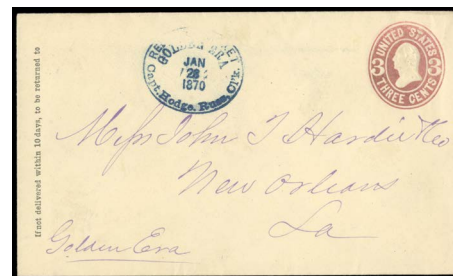 If not delivered within 10 days, to be returned to
GOLDEN ERA
JAN
28
1870
Capt. Hodge. Russ, Cl'k.
UNITED STATES
3 3
THREE CENTS
Messrs John T Hardie & Co
New Orleans
La
Golden Era